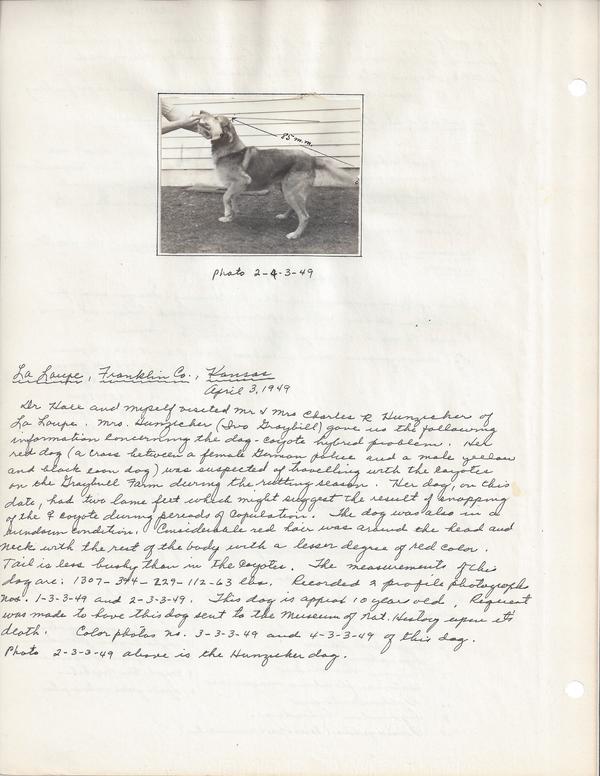 85 m.m.
Photo 2-4-3-49
La Loupe, Franklin Co., Kansas
April 3, 1949
Dr Hall and myself visited Mr & Mrs Charles R Hunzicker of
La Loupe. Mrs. Hunzicker (Ivo Graybill) gave us the following
information concerning the dog-coyote hybrid problem. Her
red dog (a cross between a female German police and a male yellow
and black coon dog) was suspected of travelling with the coyotes
on the Graybull Farm during the rutting season. Her dog, on this
date, had two lame feet which might suggest the result of snapping
of the ♀ coyote during periods of copulation. The dog was also in a
rundown condition. Considerable red hair was around the head and
neck with the rest of the body with a lesser degree of red color.
Tail is less bushy than in the coyotes. The measurements of this
dog are: 1307-394-229-112-63 lbs. Recorded 2 profile photographs
nos. 1-3-3-49 and 2-3-3-49. This dog is approx 10 year old. Request
was made to have this dog sent to the Museum of Nat. History upon its
death. Color photos no. 3-3-3-49 and 4-3-3-49 of this dog.
Photo 2-3-3-49 above is the Hunzicker dog.